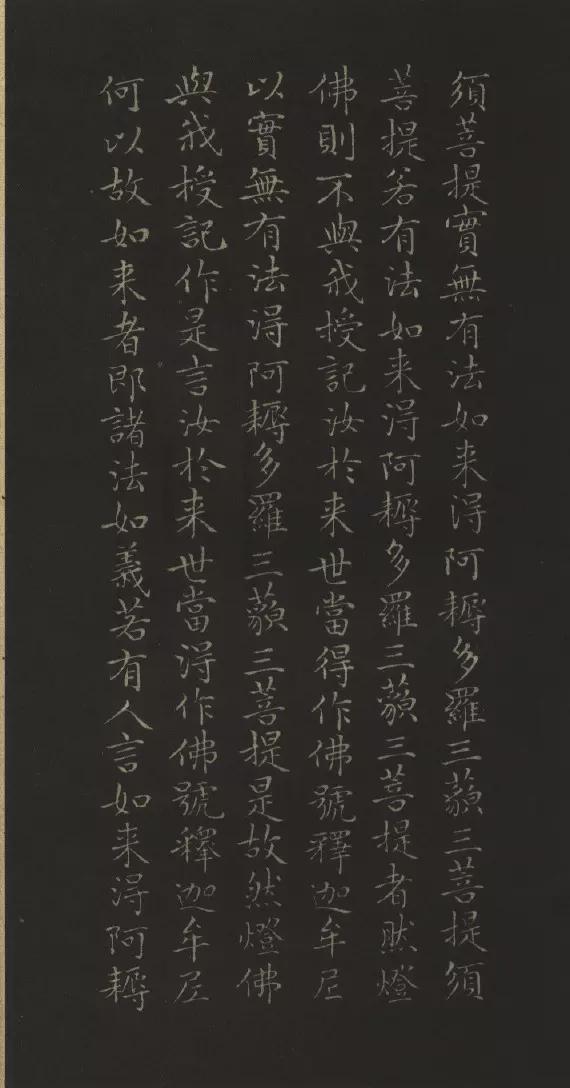 須菩提實無有法如来淂阿耨多羅三藐三菩提須
菩提若有法如来淂阿耨多羅三藐三菩提者然燈
佛則不與我授記汝於来世當得作佛號釋迦牟尼
以實無有法淂阿耨多羅三藐三菩提是故然燈佛
與我授記作是言汝於来世當淂作佛號釋迦牟尼
何以故如来者即諸法如義若有人言如来淂阿耨